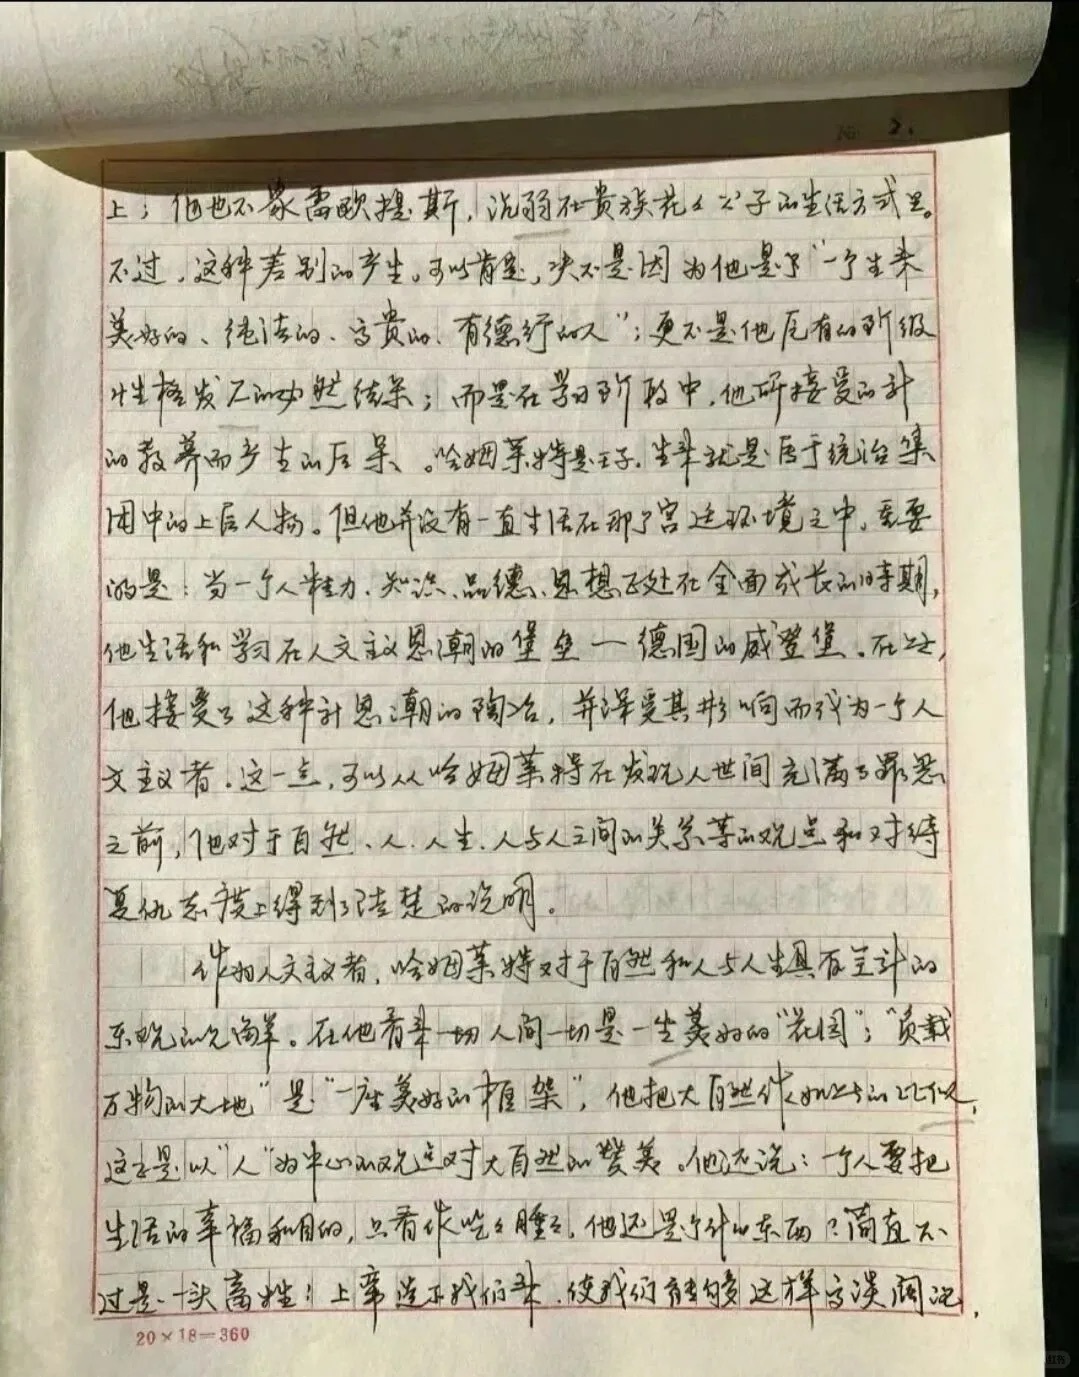 No 2.
上；他也不象雷欧提斯，沉溺在贵族花花公子的生活方式里。
不过，这种差别的产生，可以肯定，决不是因为他是个“一个生来
美好的、纯洁的、高贵的、有德行的人”；更不是他固有的阶级
性格发展的必然结果；而是在学习阶段中，他所接受的新
的教养而产生的后果。哈姆莱特是王子，生来就是居于统治集
团中的上层人物。但他并没有一直生活在那个宫廷环境之中，重要
的是：当一个人精力、知识、品德、思想正处在全面成长的时期，
他生活和学习在人文主义思潮的堡垒—德国的威登堡。在这，
他接受了这种新思潮的陶冶，并深受其影响而成为一个人
文主义者。这一点，可以从哈姆莱特在发现人世间充满了罪恶
之前，他对于自然、人、人生、人与人之间的关系等的观点和对待
复仇态度上得到了清楚的说明。
作为人文主义者，哈姆莱特对于自然和人与人生具有全新的
乐观的见解。在他看来一切人间一切是一生美好的“花园”；“负载
万物的大地”是“一座美好的框架”，他把大自然作如此的比似，
这正是以“人”为中心的观点对大自然的赞美。他还说：一个人要把
生活的幸福和目的，只看作吃吃睡睡，他还是个什么东西？简直不
过是一头畜牲！上帝造下我们来，使我们能够这样高谈阔论，
20×18=360